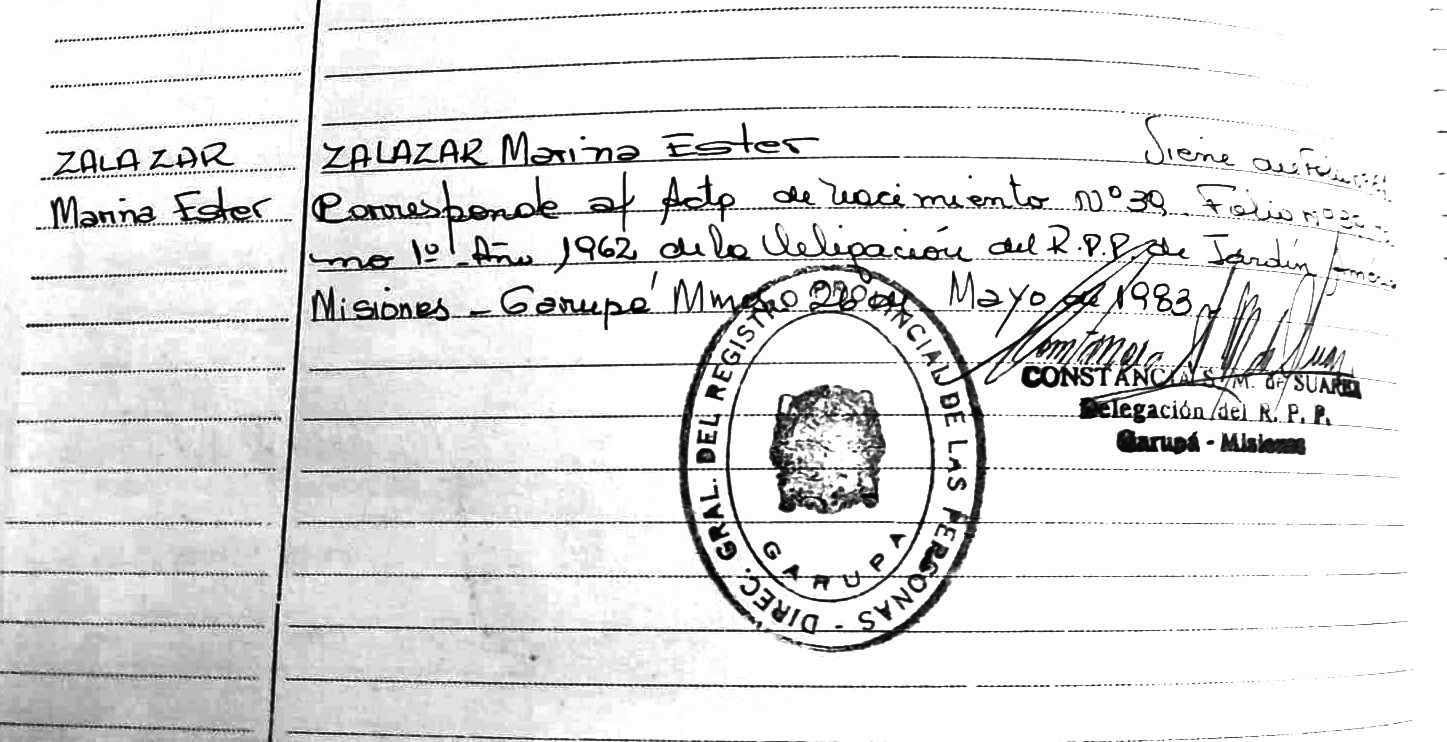 ZALAZAR
Marina Ester
ZALAZAR Marina Ester
Corresponde al Acta de nacimiento Nº 39 Folio Nº
mo 1º Año 1962 de la Delegación del R.P.P. de Jardín
Misiones - Garupá Mnes Mayo de 1983
CONSTANCIA S. M. de SUAREZ
Delegación del R. P. P.
Garupá - Misiones
DIREC. GRAL. DEL REGISTRO PROVINCIAL DE LAS PERSONAS -
GARUPA